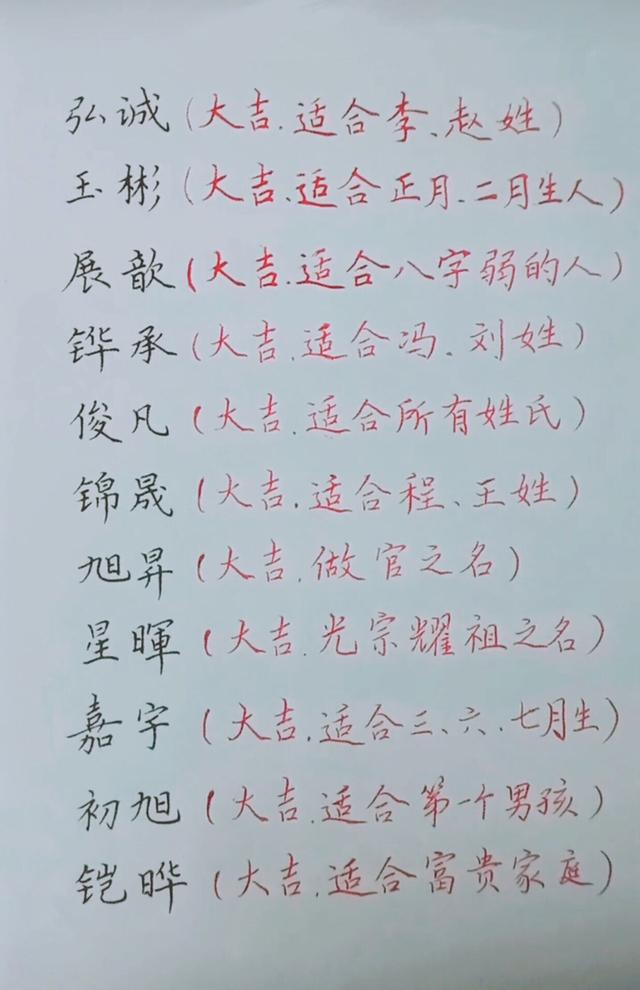 弘诚(大吉.适合李、赵姓)
玉彬(大吉、适合正月.二月生人)
展歆(大吉.适合八字弱的人)
铧承(大吉.适合冯.刘姓)
俊凡(大吉.适合所有姓氏)
锦晟(大吉.适合程、王姓)
旭昇(大吉.做官之名)
星暉(大吉.光宗耀祖之名)
嘉宇(大吉.适合三、六、七月生)
初旭(大吉.适合第一个男孩)
铠晔(大吉.适合富贵家庭)